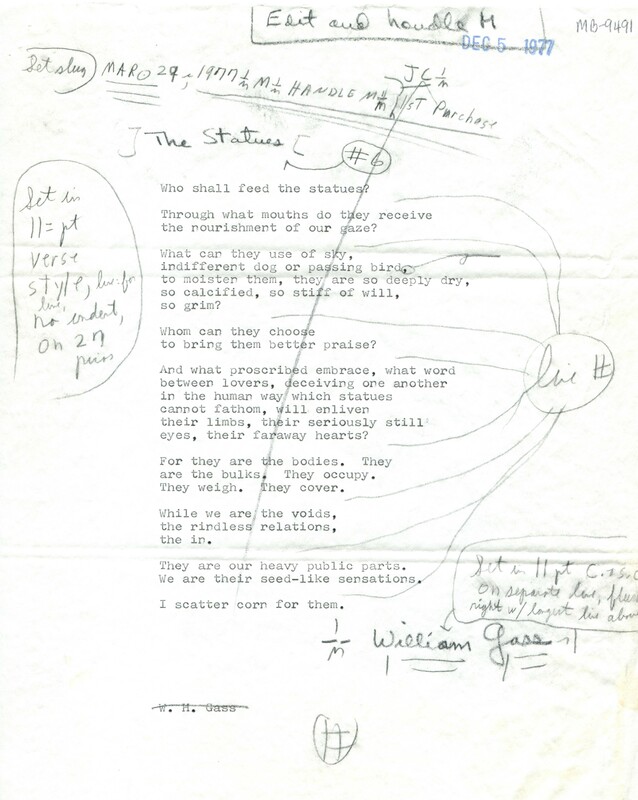 Edit and handle H
MB-9491
DEC 5 1977
Set slug
MAR 0 29, 1977 1/m M 1/m HANDLE M 1/m
JC 1/m
1st Purchase
The Statues
#6
Who shall feed the statues?
Through what mouths do they receive
the nourishment of our gaze?
What can they use of sky,
indifferent dog or passing bird,
to moisten them, they are so deeply dry,
so calcified, so stiff of will,
so grim?
Whom can they choose
to bring them better praise?
And what proscribed embrace, what word
between lovers, deceiving one another
in the human way which statues
cannot fathom, will enliven
their limbs, their seriously still
eyes, their faraway hearts?
For they are the bodies.  They
are the bulks.  They occupy.
They weigh.  They cover.
While we are the voids,
the rindless relations,
the in.
They are our heavy public parts.
We are their seed-like sensations.
I scatter corn for them.
Set in
11 = pt
verse
style, line for
line,
no indent,
on 27
picas
line #
Set in 11 pt C. + S.C.
on separate line, flush
right w/ longest line above
1/m William Gass
W. H. Gass
#